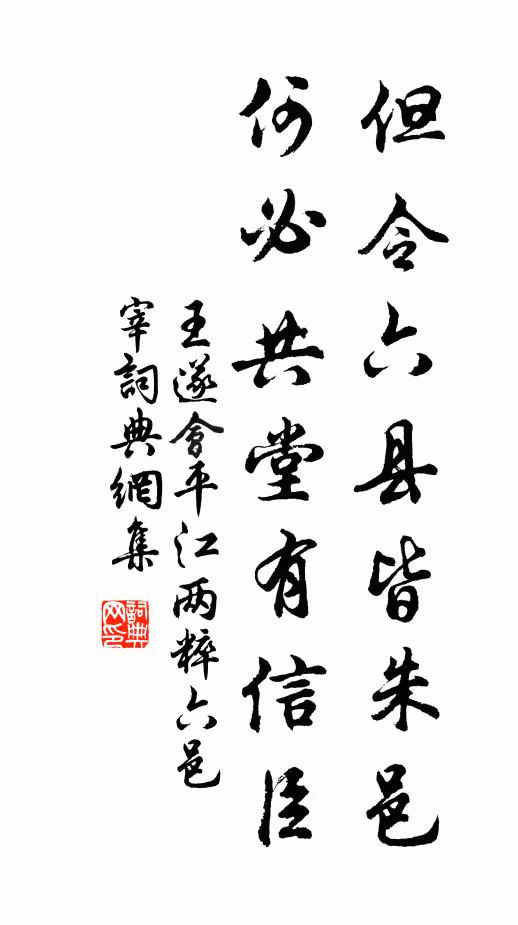 但令六县皆朱邑
何必共堂有信臣
王遂會平江两粹六邑
宰詞典網集
詞典网印